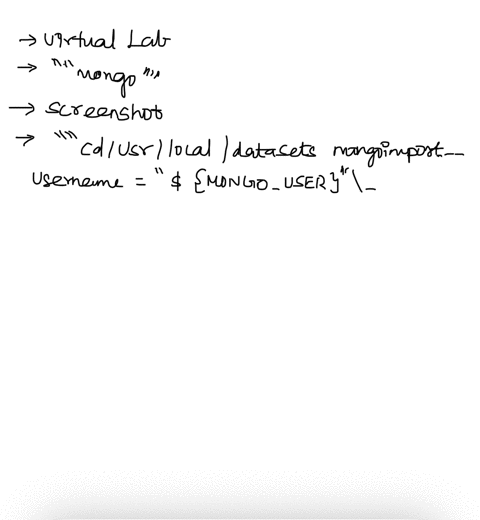 → virtual Lab
→ """mongo"""
→ screenshot
→ """cd/usr/local/datasets mongoimport--
username = "${MONGO_USER}"\_